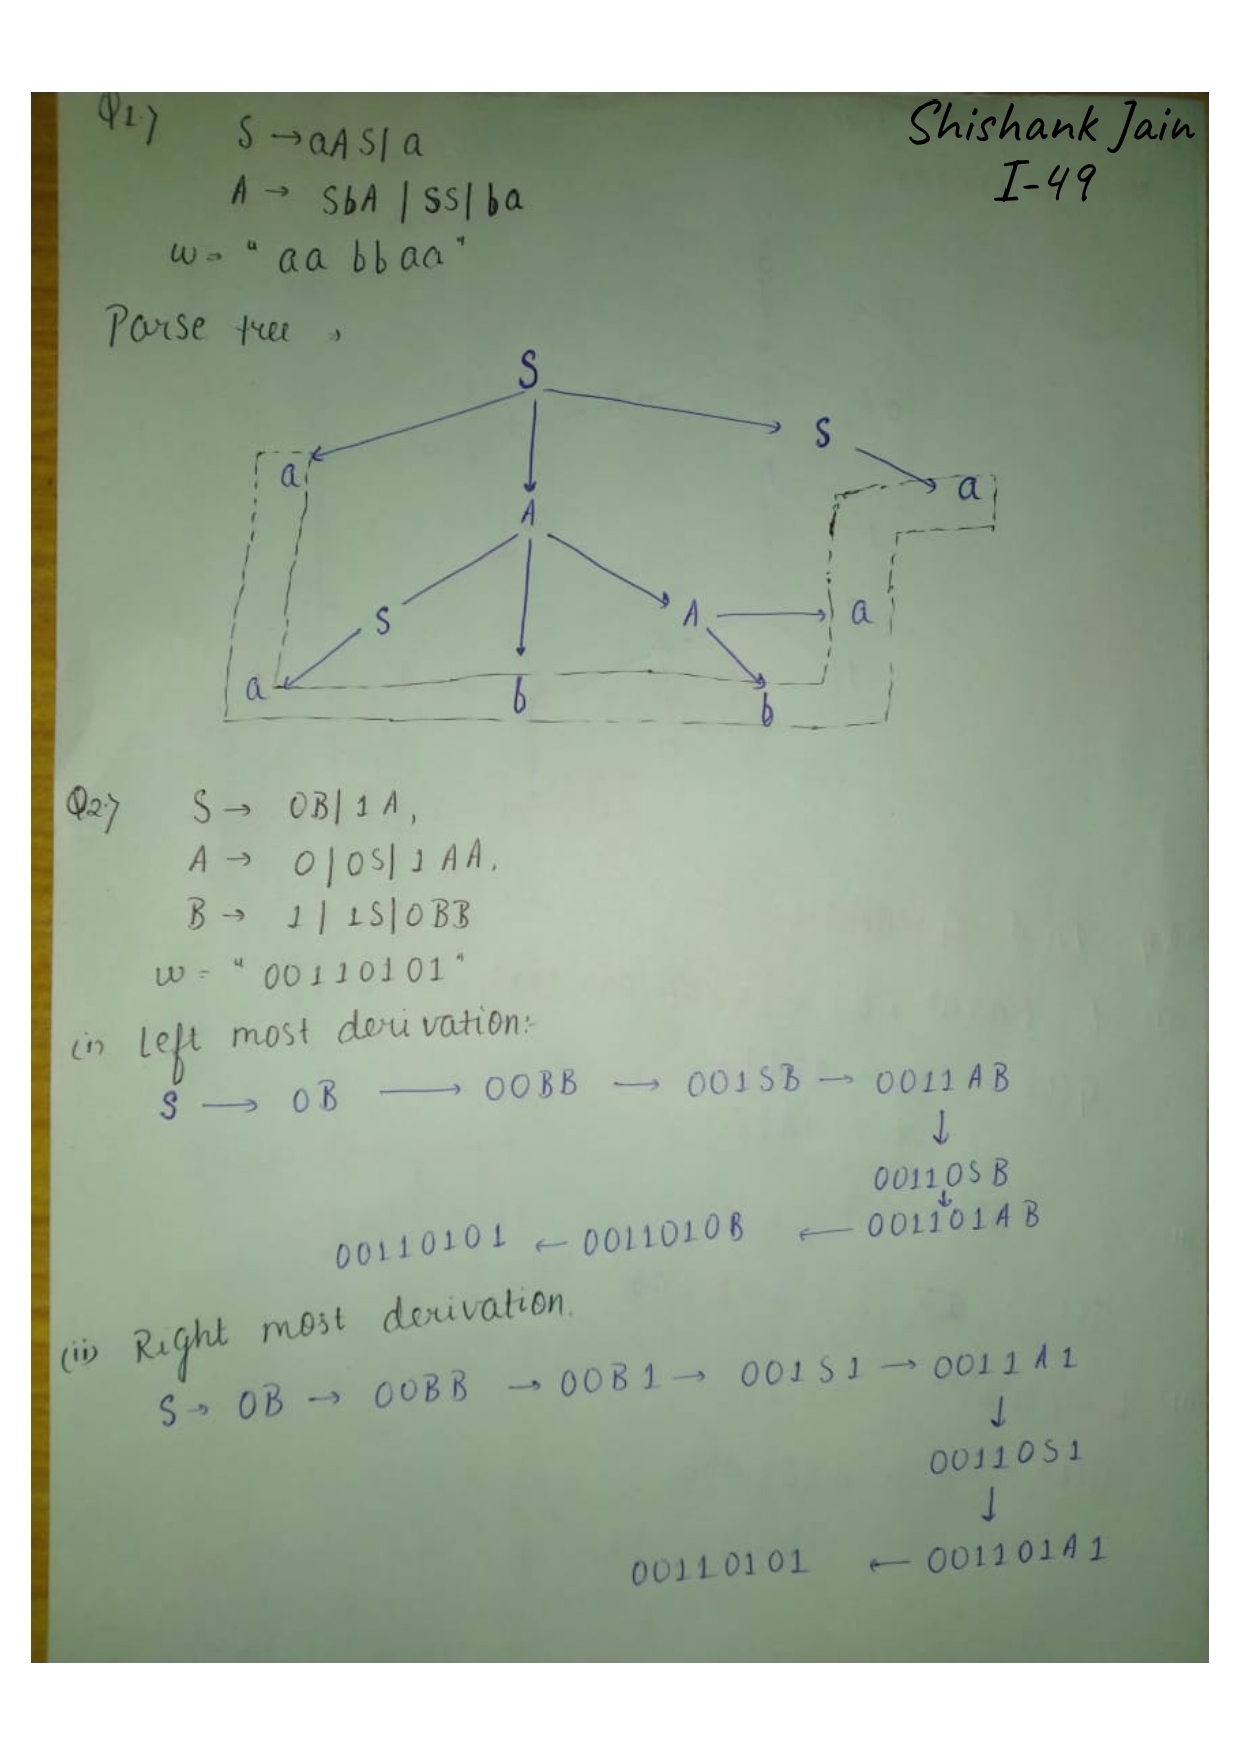 Q1)
Shishank Jain
I-49
S → aAS | a
A → SbA | SS | ba
w = "aa bb aa"
Parse tree →
S
S
a
a
A
S
A
a
a
b
b
Q2)
S → 0B | 1A,
A → 0 | 0S | 1AA.
B → 1 | 1S | 0BB
w = "00110101"
(i) Left most derivation:-
S → 0B → 00BB → 001SB → 0011AB
↓
00110SB
↓
00110101 ← 0011010B ← 001101AB
(ii) Right most derivation.
S → 0B → 00BB → 00B1 → 001S1 → 0011A1
↓
00110S1
↓
00110101 ← 001101A1